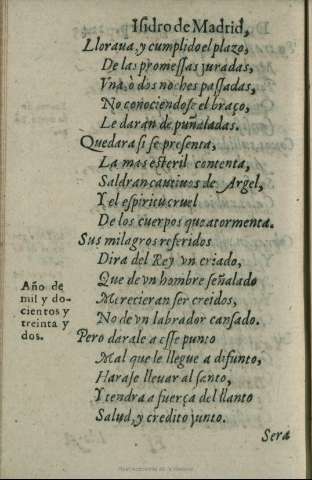 Isidro de Madrid,
Lloraua, y cumplido el plazo,
De las promessas juradas,
Vna, ò dos noches passadas,
No conociendose el braço,
Le daràn de puñaladas.
Quedara si se presenta,
La mas esteril contenta,
Saldran cautiuos de Argel,
Y el espiritu cruel
De los cuerpos que atormenta.
Sus milagros referidos
Dira del Rey vn criado,
Que de vn hombre señalado
Merecieran ser creidos,
No de vn labrador cansado.
Año de
mil y do-
cientos y
treinta y
dos.
Pero darale a esse punto
Mal que le llegue a difunto,
Harase lleuar al santo,
Y tendra a fuerça del llanto
Salud, y credito junto.
Sera